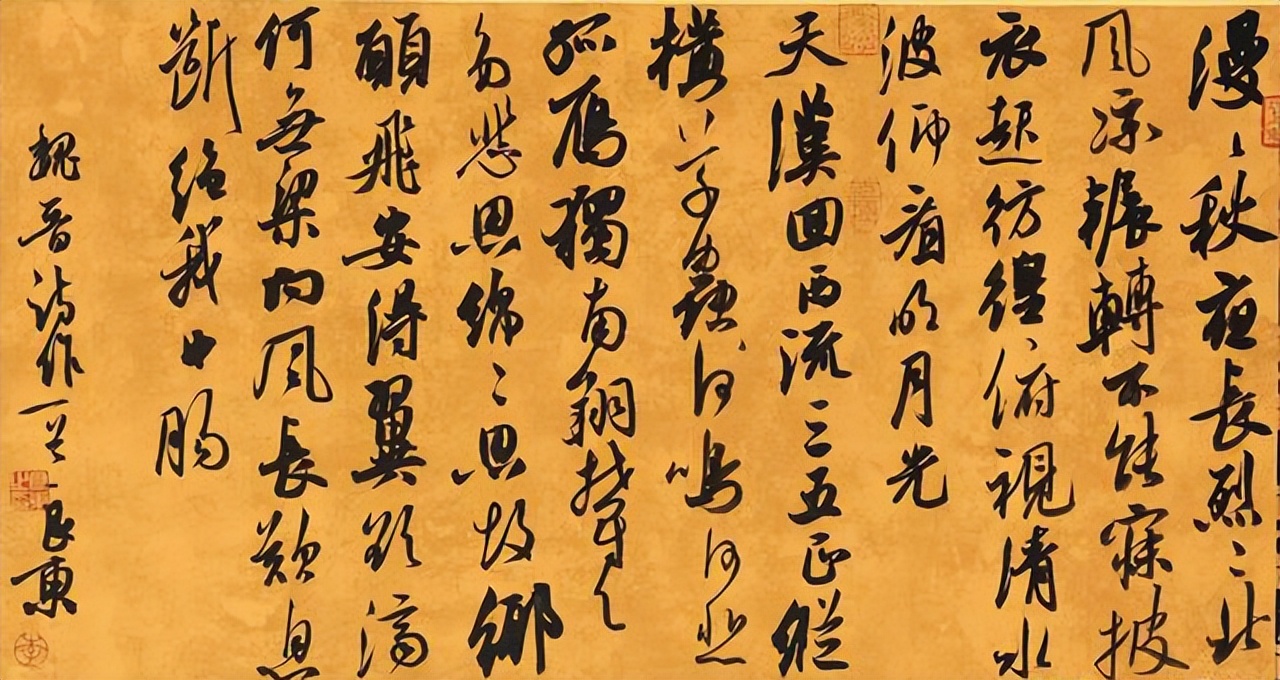 漫〻秋夜長烈〻北
風涼輾轉不能寐披
衣起彷徨俯視清水
波仰看明月光
天漢回西流三五正縱
橫草蟲何鳴何悲
孤雁獨南翔
多悲思綿〻思故鄉
願飛安得翼欲濟
何無梁向風長歎息
斷絕我中腸
魏晉詩作一首